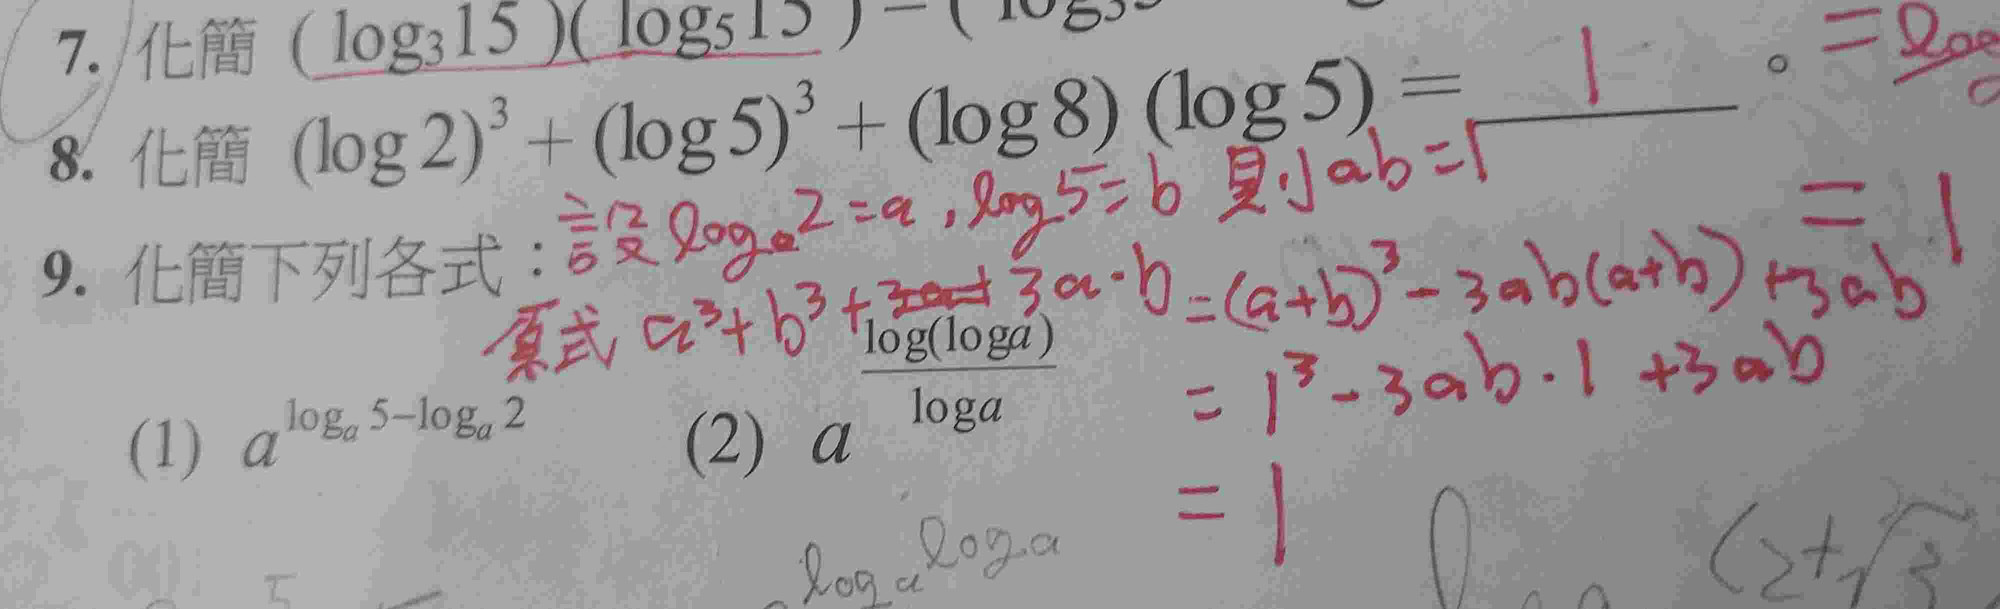 7. 化簡 ( log₃15 )( log₅15 ) − ( log₃5
= log
8. 化簡 (log 2)³ + (log 5)³ + (log 8) (log 5) = 1 。
設 logₐ2 = a , log 5 = b 則 ab = 1
= 1
9. 化簡下列各式：
原式 a³ + b³ + 3a·b = (a+b)³ − 3ab(a+b) + 3ab
= 1³ − 3ab·1 + 3ab
= 1
(1) a^(logₐ5−logₐ2) (2) a^(log(loga)/loga)
logₐ log a
(2+√3